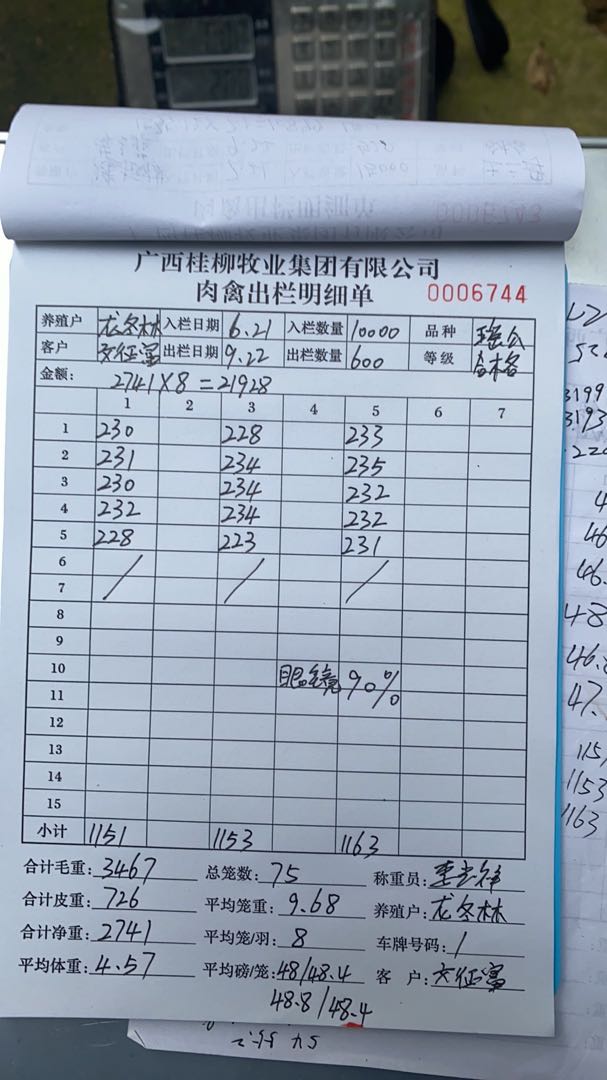 广西桂柳牧业集团有限公司
肉禽出栏明细单 0006744
养殖户 龙冬林 入栏日期 6.21 入栏数量 10000 品种
客户 出栏日期 9.22 出栏数量 600 等级 合格
金额: 2741×8=21928
1 2 3 4 5 6 7
1 230 228 233
2 231 234 235
3 230 234 232
4 232 234 232
5 228 223 231
6 / / /
7
8
9
10 眼镜 90%
11
12
13
14
15
小计 1151 1153 1163
合计毛重: 3467 总笼数: 75 称重员:
合计皮重: 726 平均笼重: 9.68 养殖户: 龙冬林
合计净重: 2741 平均笼/羽: 8 车牌号码: /
平均体重: 4.57 平均磅/笼: 48/48.4 客 户:
48.8/48.4
3199
3193
46
46.
48
46.8
47.
115
1153
1163